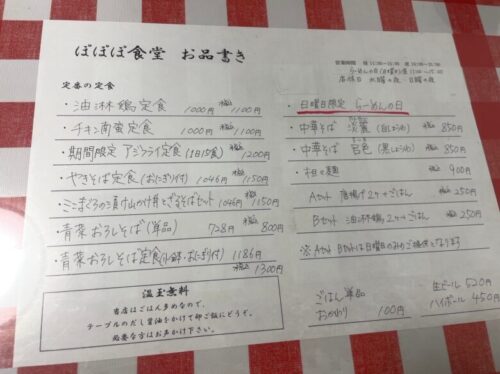 ぼぼぼ食堂 お品書き
営業時間 昼11:00~15:00 夜18:00~21:00
らーめんの日(日曜)は夜11:00~15:00
店休日 水曜の夜・日曜の夜
定番の定食
・油淋鶏定食 1000円 税込 1100円
・チキン南蛮定食 1000円 税込 1100円
・期間限定 アジフライ定食(1日15食) 税込 1200円
・やきそば定食(おにぎり付) 1046円 税込 1150円
・ミニまぐろの漬け山かけ丼とざるそばセット 1046円 税込 1150円
・青菜おろしそば(単品) 728円 税込 800円
・青菜おろしそば定食(小鉢・おにぎり付) 1186円
税込 1300円
温玉無料
当店はごはん多めなので、
テーブルのだし醤油をかけて卵ご飯にどうぞ。
必要な方はお声かけ下さい。
・日曜日限定 らーめんの日
・中華そば 淡麗(白しょうゆ) 税込 850円
・中華そば 呂色(黒しょうゆ) 税込 850円
・担々麺 税込 900円
Aセット 唐揚げ2ヶ+ごはん 税込 250円
Bセット 油淋鶏2ヶ+ごはん 税込 250円
※Aセット Bセットは日曜日のみのご提供となります
ごはん単品
おかわり 100円
生ビール 520円
ハイボール 450円